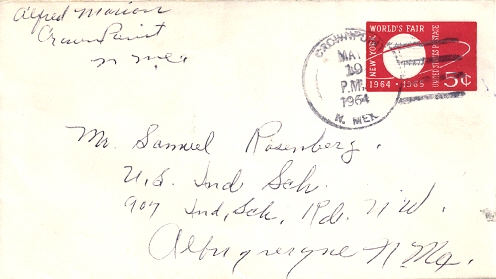 Alfred Marion
Crown Point
N Mex.
CROWNPOINT
MAY
19
P.M.
1964
N. MEX.
NEW YORK WORLD'S FAIR
1964-1965
UNITED STATES POSTAGE
5¢
Mr. Samuel Rosenberg.
U.S. Ind Sch.
907 Ind, Sch. Rd. N W.
Albuquerque N Mex.